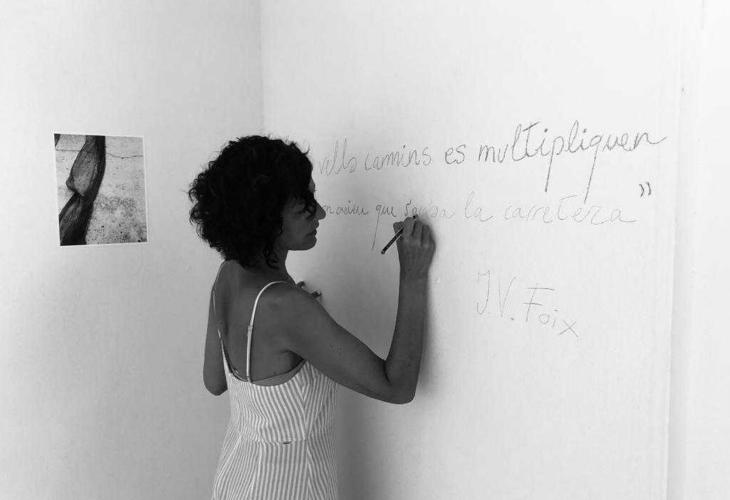 camins es multipliquen
que la carretera”
J.V. Foix